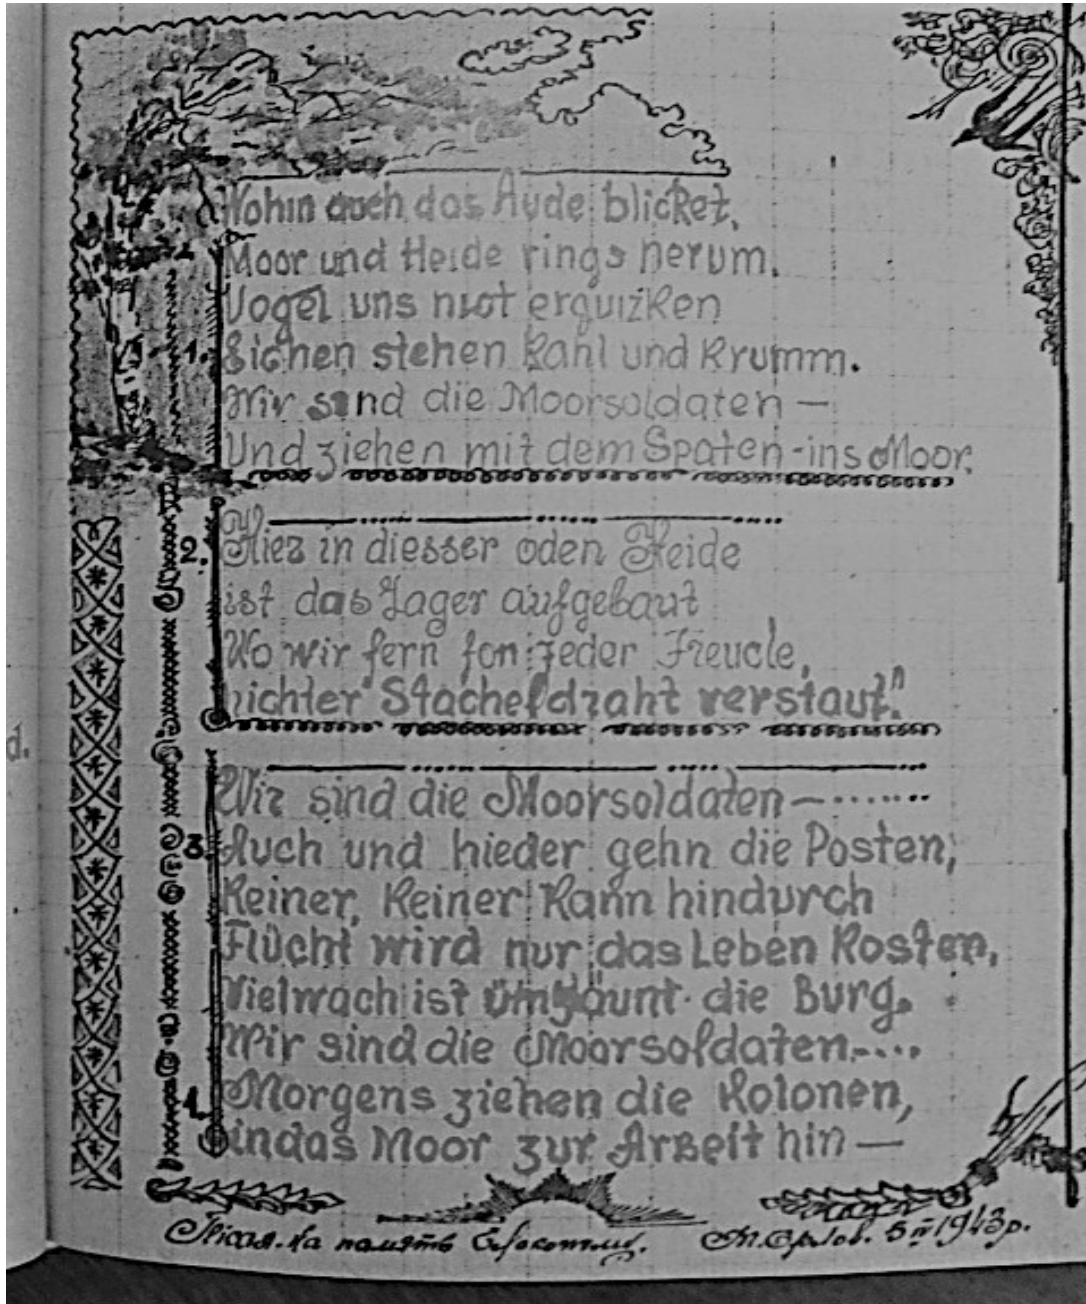 Wohin auch das Aude blicket,
Moor und Heide rings herum.
Vogel uns nict erquizken
1. Eichen stehen kahl und krumm.
Wir sind die Moorsoldaten —
Und ziehen mit dem Spaten - ins Moor.
2. Hier in diesser oden Heide
ist das Lager aufgebaut
Wo wir fern fon jeder Freude,
hichter Stacheldraht verstaut."
Wir sind die Moorsoldaten — .......
3. Auch und nieder gehn die Posten,
Keiner, Keiner kann hindurch
Flücht wird nur das Leben kosten,
Vielwach ist ümzäunt die Burg.
Wir sind die Moorsoldaten....
Morgens ziehen die Kolonen,
in das Moor zur Arbeit hin —
d.
на память 1943р.